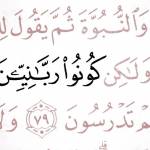 وَٱلنُّبُوَّةَ ثُمَّ يَقُولَ
وَلَٰكِن كُونُوا۟ رَبَّـٰنِيِّـۧنَ
تَدْرُسُونَ ٧٩